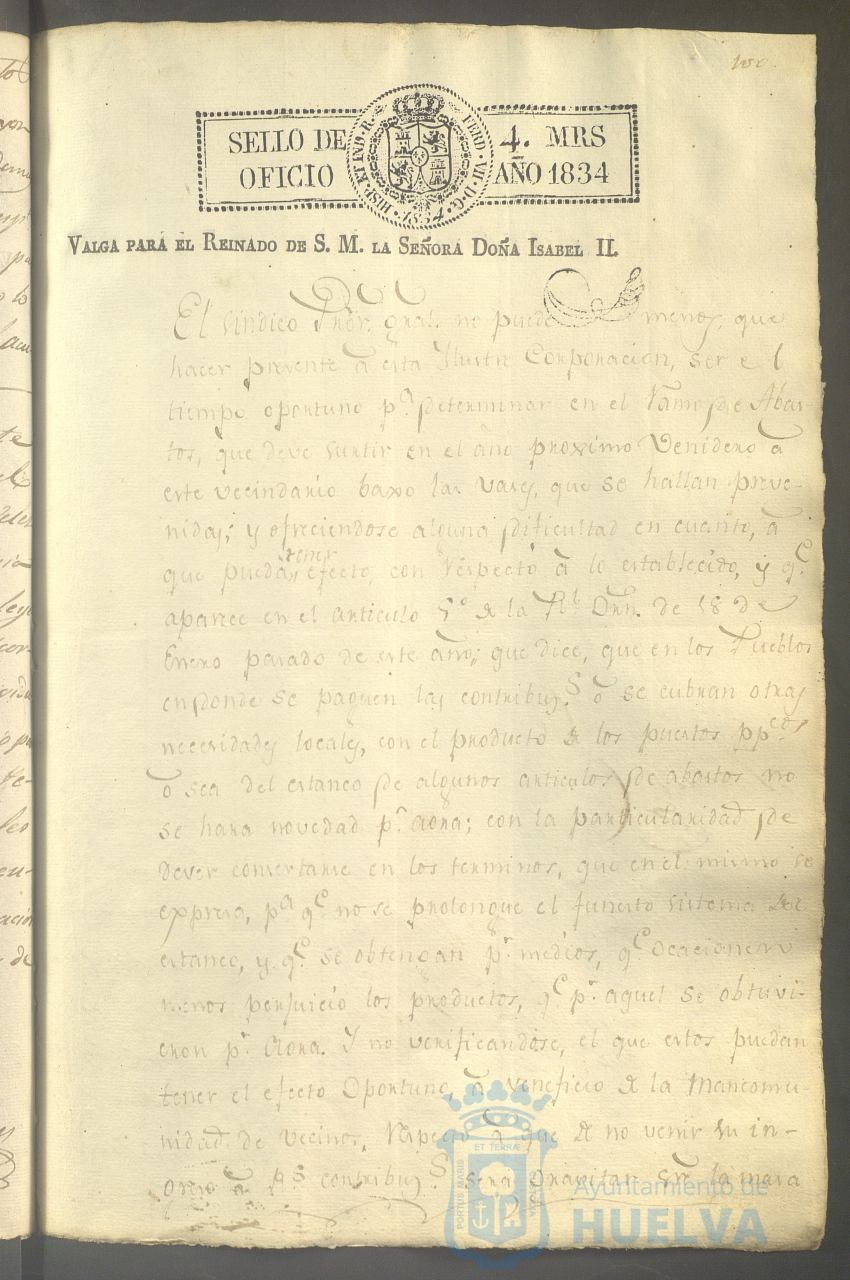 100
SELLO DE OFICIO
4. MRS AÑO 1834
HISP. ET IND. R. FERD. VII. D. G. 1834
VALGA PARA EL REINADO DE S. M. LA SEÑORA DOÑA ISABEL II.
El Síndico Pror. gral. no puede menos, que
hacer presente â esta Ilustre Corporacion, ser el
tiempo oportuno pa. determinar en el ramo de Abas-
tos, que deve surtir en el año proximo Venidero â
este vecindario baxo las vases, que se hallan preve-
nidas; y ofreciendose alguna dificultad en cuanto, â
que puedan tener efecto, con respecto â lo establecido, y qe.
aparece en el articulo 5o de la Rl. Orn. de 18 de
Enero pasado de este año; que dice, que en los Pueblos
en donde se paguen las contribus.s ô se cubran otras
necesidades locales, con el producto de los puestos ppcos
ô sea del estanco de algunos articulos de abastos no
se hara novedad pr. aora; con la particularidad de
dever concertarse en los terminos, que en el mismo se
expresa, pa qe. no se prolongue el funesto sistema del
estanco, y qe. se obtengan pr. medios, qe. ocacionen
menos perjuicio los productos, qe. pr. aquel se obtuvi-
eron pr. Aora. Y no verificandose, el que estos puedan
tener el efecto Oportuno, â veneficio de la Mancomu-
nidad de vecinos, respecto â que de no venir su in-
greso â Rs contribus.s será gravitar sre. la masa
PORTUS MARIS ET TERRAE CUSTODIA
Ayuntamiento de
HUELVA